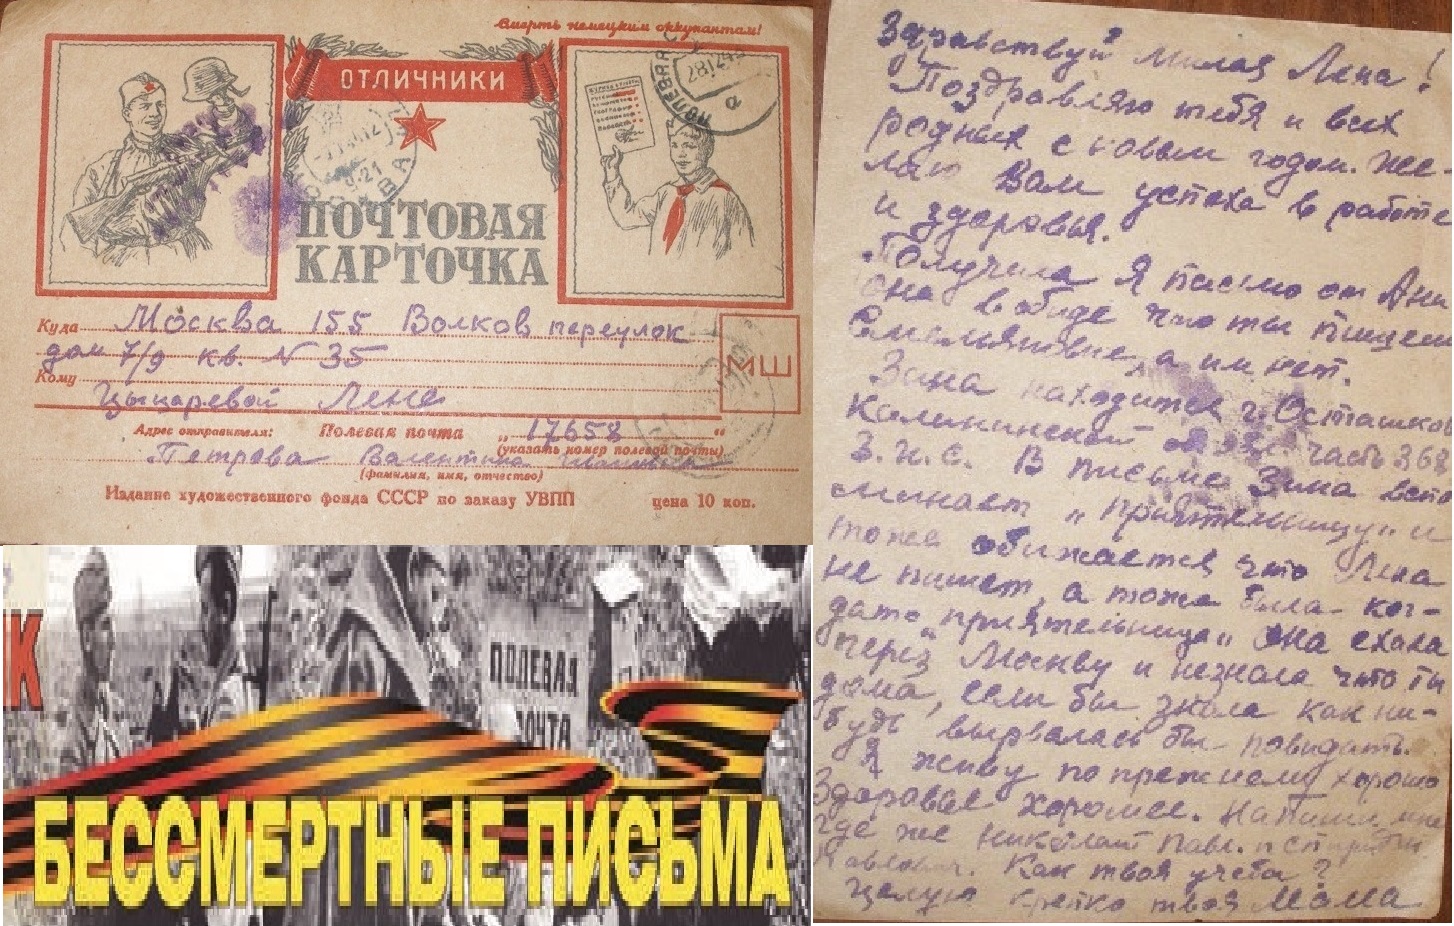 Смерть немецким оккупантам!
ОТЛИЧНИКИ
ПОЛЕВАЯ
ПОЧТОВАЯ
КАРТОЧКА
Куда Москва 155 Волков переулок
дом 7/9 кв. N 35
Кому
Цыцаревой Лене
МШ
Адрес отправителя: Полевая почта „ 17658 “
(указать номер полевой почты)
Петрова Валентина
(фамилия, имя, отчество)
Издание художественного фонда СССР по заказу УВПП цена 10 коп.
К
ПОЛЕВАЯ
ПОЧТА
БЕССМЕРТНЫЕ ПИСЬМА
Здравствуй милая Лена!
Поздравляю тебя и всех
родных с новым годом. Же-
лаю Вам успеха в работе
и здоровья.
Получила я письмо от Ани
она в обиде что ты пишеш
Емельяновне, а им нет.
Зина находится г. Осташков
Калининской часть 368
З.И.С. В письме Зина вспо
минает „приятельницу“ и
тоже обижается что Лена
не пишет, а тоже была ког-
дато „приятельница“ она ехала
через Москву и незнала что ты
дома, если бы знала как ни-
будь вырвалась бы повидать.
Я живу по прежнему хорошо
Здоровье хорошее. Напиши мне
где же Николай Павл. и
Павлович. Как твоя учеба?
Целую крепко твоя Мама